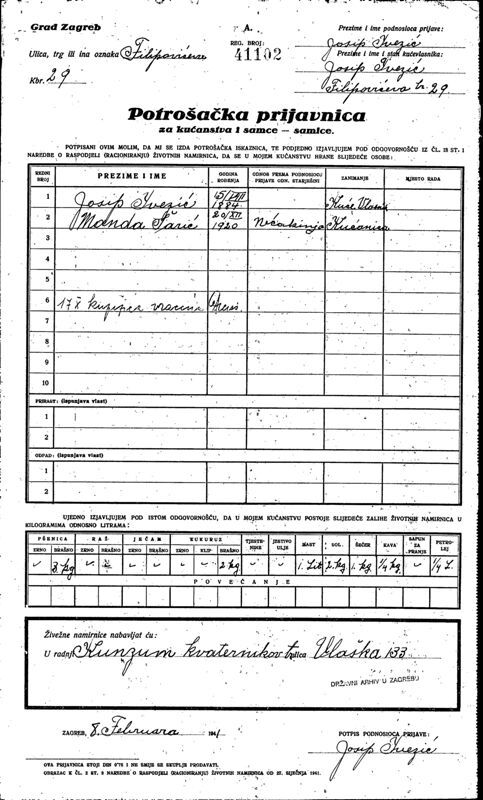 Grad Zagreb
Ulica, trg ili ina oznaka Filipovićeva
Kbr. 29
A.
REG. BROJ:
41102
Prezime i ime podnosioca prijave:
Josip Ivezić
Prezime i ime i stan kućevlasnika:
Josip Ivezić
Filipovićeva br. 29.
Potrošačka prijavnica
za kućanstva i samce – samice.
POTPISANI OVIM MOLIM, DA MI SE IZDA POTROŠAČKA ISKAZNICA, TE PODJEDNO IZJAVLJUJEM POD ODGOVORNOŠĆU IZ ČL. 18 ST. 1
NAREDBE O RASPODJELI (RACIONIRANJU) ŽIVOTNIH NAMIRNICA, DA SE U MOJEM KUĆANSTVU HRANE SLIJEDEĆE OSOBE:
REDNI BROJ PREZIME I IME GODINA ROĐENJA ODNOS PREMA PODNOSIOCU PRIJAVE ODN. STARJEŠINI ZANIMANJE MJESTO RADA
1 Josip Ivezić 1884 Kuće Vlasnik
2 Manda Šarić 20/XII 1920 Nećakinja Kućanica
3
4
5
6 17 X
7
8
9
10
PRIRAST: (ispunjava vlast)
1
2
OTPAD: (ispunjava vlast)
1
2
UJEDNO IZJAVLJUJEM POD ISTOM ODGOVORNOŠĆU, DA U MOJEM KUĆANSTVU POSTOJE SLIJEDEĆE ZALIHE ŽIVOTNIH NAMIRNICA U
KILOGRAMIMA ODNOSNO LITRAMA:
PŠENICA RAŽ JEČAM KUKURUZ TJESTENINE JESTIVO ULJE MAST SOL ŠEĆER KAVA SAPUN ZA PRANJE PETROLEJ
ZRNO BRAŠNO ZRNO BRAŠNO ZRNO BRAŠNO ZRNO KLIP BRAŠNO
8 kg 2 kg 2 kg 1 kg 1/4 kg 1/4 L.
POVEĆANJE
Živežne namirnice nabavljat ću:
U radnji Kunzum kvaternikov t. ulica Vlaška 133
DRŽAVNI ARHIV U ZAGREBU
ZAGREB, 8. Februara 1941
POTPIS PODNOSIOCA PRIJAVE:
Josip Ivezić
OVA PRIJAVNICA STOJI DIN 0·75 I NE SMIJE SE SKUPLJE PRODAVATI.
OBRAZAC K ČL. 2 ST. 2 NAREDBE O RASPODJELI (RACIONIRANJU) ŽIVOTNIH NAMIRNICA OD 25. SIJEČNJA 1941.